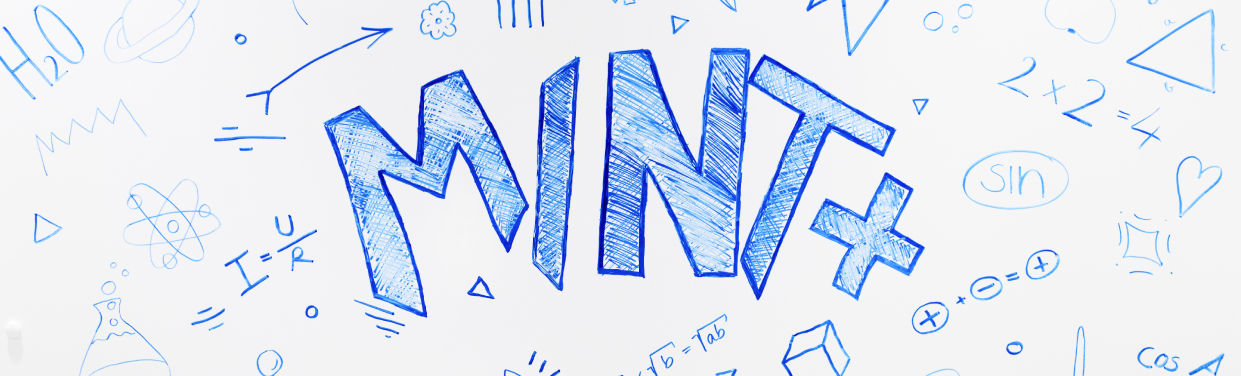 H₂O
MINT+
2 x 2 = 4
sin
I = U/R
√b = √ab
cos